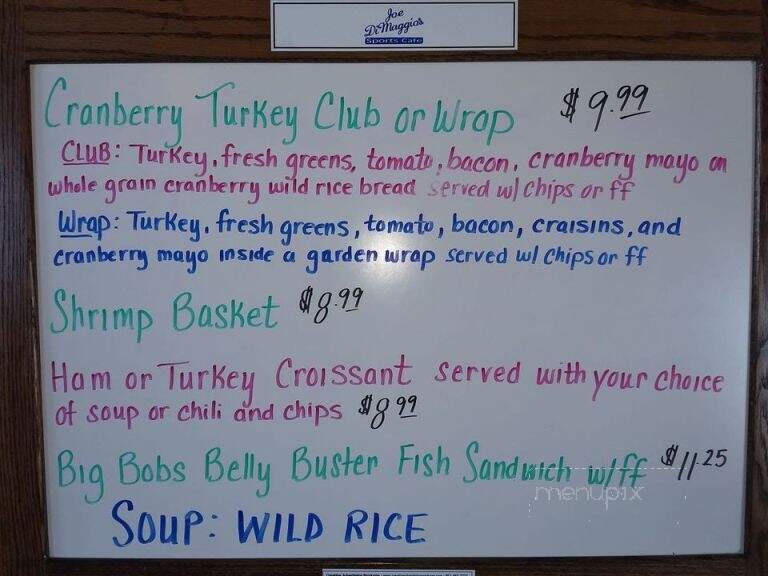 Joe
DiMaggio's
Sports Cafe
Cranberry Turkey Club or Wrap $9.99
CLUB: Turkey, fresh greens, tomato, bacon, cranberry mayo on
whole grain cranberry wild rice bread served w/ chips or ff
Wrap: Turkey, fresh greens, tomato, bacon, craisins, and
cranberry mayo inside a garden wrap served w/ chips or ff
Shrimp Basket $8.99
Ham or Turkey Croissant served with your choice
of soup or chili and chips $8.99
Big Bobs Belly Buster Fish Sandwich w/ff $11.25
menupix
SOUP: WILD RICE